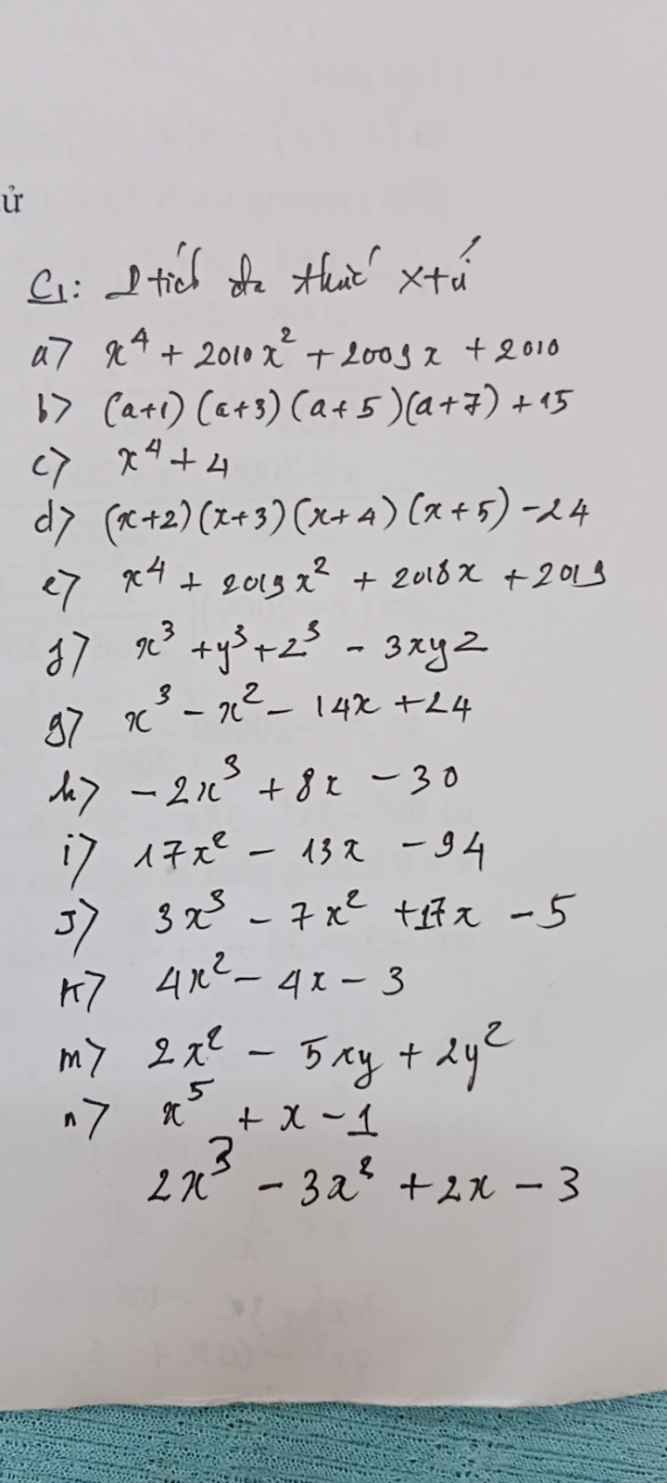 ử
C1: Ptích đa thức xtử
a> x⁴ + 2010x² + 2009x + 2010
b> (a+1)(a+3)(a+5)(a+7) + 15
c> x⁴ + 4
d> (x+2)(x+3)(x+4)(x+5) - 24
e> x⁴ + 2019x² + 2018x + 2019
f> x³ + y³ + z³ - 3xyz
g> x³ - x² - 14x + 24
h> - 2x³ + 8x - 30
i> 17x² - 13x - 94
J> 3x³ - 7x² + 17x - 5
k> 4x² - 4x - 3
m> 2x² - 5xy + 2y²
n> x⁵ + x - 1
2x³ - 3x² + 2x - 3